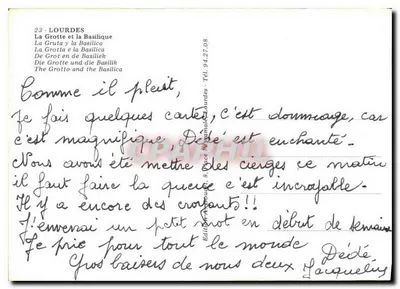 23 - LOURDES
La Grotte et la Basilique
La Gruta y la Basilica
La Grotta e la Basilica
De Grot en de Basiliek
Die Grotte und die Basilik
The Grotto and the Basilica
Comme il pleut,
Je fais quelques cartes, c'est dommage, car
c'est magnifique, Dédé est enchanté.
Nous avons été mettre des cierges ce matin
il faut faire la queue c'est incroyable.
Il y a encore des croyants!!
J'enverai un petit mot en début de semaine
Je prie pour tout le monde
Gros baisers de nous deux Dédé
Jacqueline
Lourdes - Tél. 94.27.08